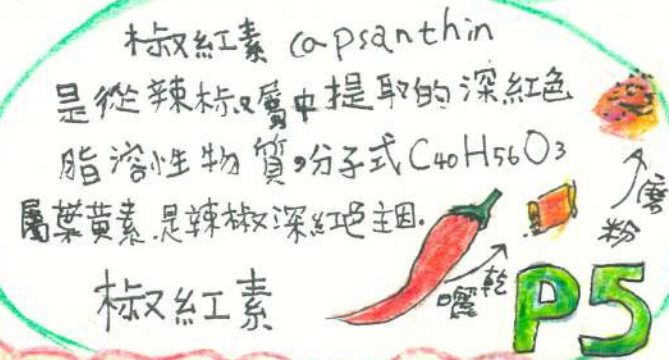 椒紅素 capsanthin
是從辣椒屬中提取的深紅色
脂溶性物質,分子式C40H56O3
屬葉黃素.是辣椒深紅色主因.
椒紅素
曬乾
磨粉
P5